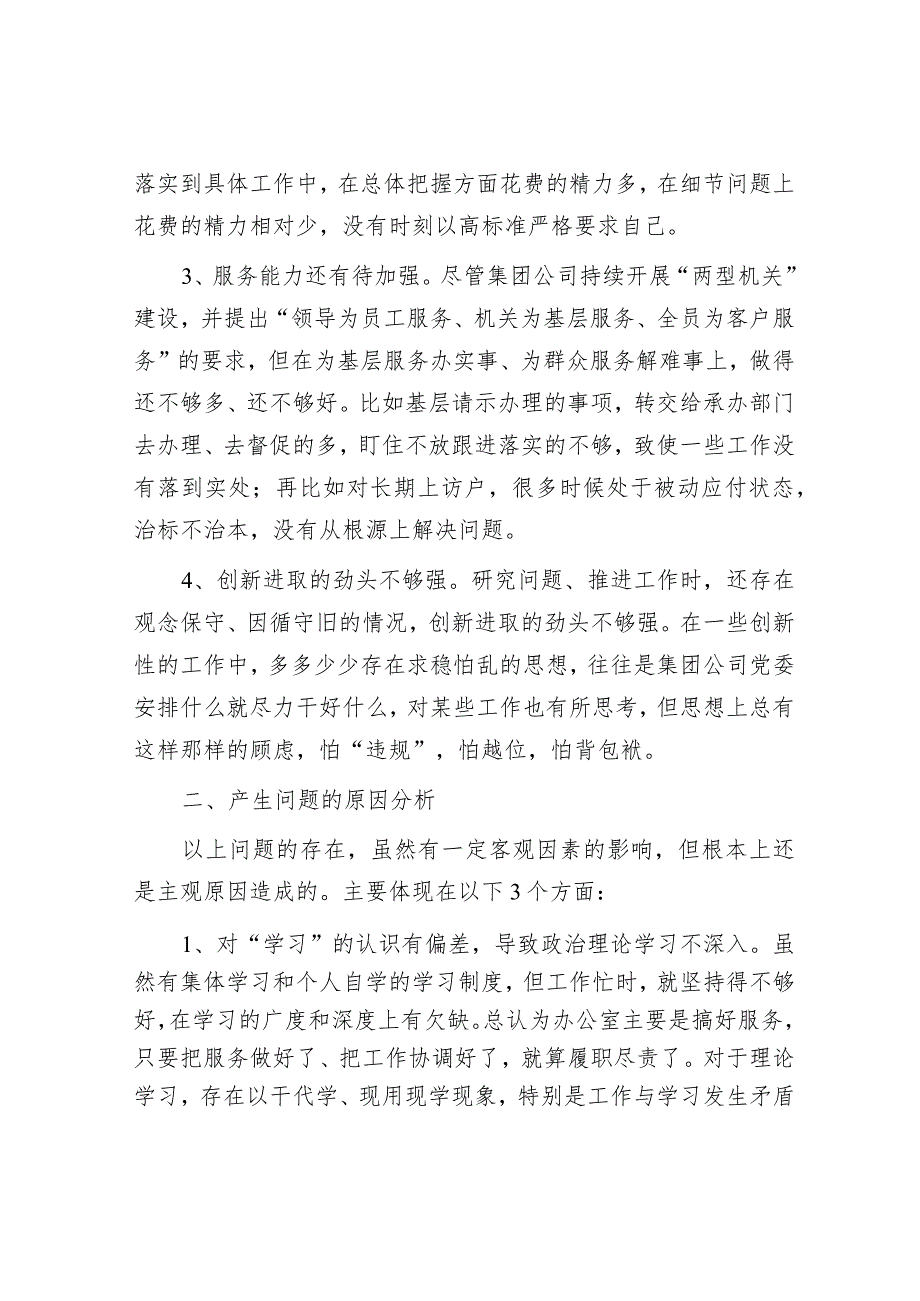 落实到具体工作中，在总体把握方面花费的精力多，在细节问题上
花费的精力相对少，没有时刻以高标准严格要求自己。
3、服务能力还有待加强。尽管集团公司持续开展“两型机关”
建设，并提出“领导为员工服务、机关为基层服务、全员为客户服
务”的要求，但在为基层服务办实事、为群众服务解难事上，做得
还不够多、还不够好。比如基层请示办理的事项，转交给承办部门
去办理、去督促的多，盯住不放跟进落实的不够，致使一些工作没
有落到实处；再比如对长期上访户，很多时候处于被动应付状态，
治标不治本，没有从根源上解决问题。
4、创新进取的劲头不够强。研究问题、推进工作时，还存在
观念保守、因循守旧的情况，创新进取的劲头不够强。在一些创新
性的工作中，多多少少存在求稳怕乱的思想，往往是集团公司党委
安排什么就尽力干好什么，对某些工作也有所思考，但思想上总有
这样那样的顾虑，怕“违规”，怕越位，怕背包袱。
二、产生问题的原因分析
以上问题的存在，虽然有一定客观因素的影响，但根本上还
是主观原因造成的。主要体现在以下3个方面：
1、对“学习”的认识有偏差，导致政治理论学习不深入。虽
然有集体学习和个人自学的学习制度，但工作忙时，就坚持得不够
好，在学习的广度和深度上有欠缺。总认为办公室主要是搞好服务，
只要把服务做好了、把工作协调好了，就算履职尽责了。对于理论
学习，存在以干代学、现用现学现象，特别是工作与学习发生矛盾